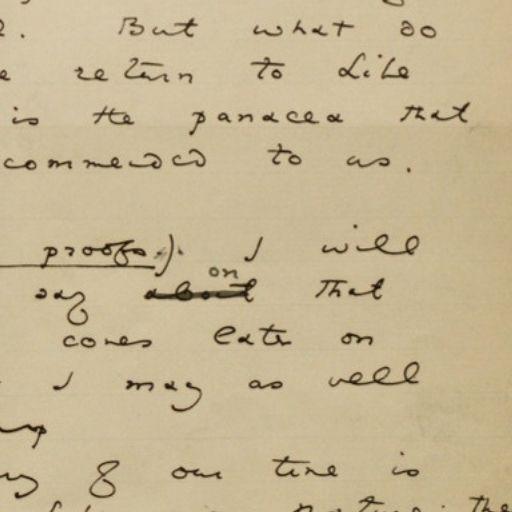 But what do
return to life
is the panacea that
commended to us.
proofs). I will
on
say about that
comes later on
I may as well
up
of our time is
the